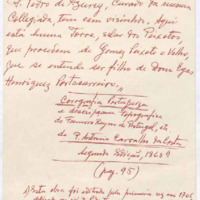 S. Pedro de Gurey, Curado da mesma
Collegiada, tem cem vizinhos. Aqui
está huma Torre, solar dos Peixotos
que procedem de Gomes Peixoto o Velho,
que se entende ser filho de Dom Egas
Henriques Portocarreiro."
Corografia Portugueza
e descripçam topografica
do Famoso Reyno de Portugal, etc.
do P. Antonio Carvalho da Costa
Segunda Edição, 1868
(pag. 95)
1) Esta obra foi editada pela primeira vez em 1706